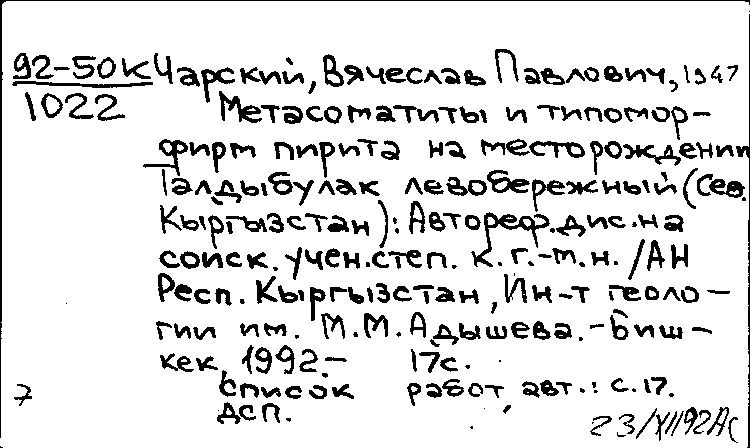 92-50к Чарский, Вячеслав Павлович, 1947
1022 Метасоматиты и типомор-
фирм пирита на месторождении
Талдыбулак левобережный (Сев.
Кыргызстан): Автореф. дис. на
соиск. учен. степ. к. г.-м. н. / АН
Респ. Кыргызстан, Ин-т геоло-
гии им. М. М. Адышева. - Биш-
кек, 1992. - 17с.
7 Список работ, авт.: с. 17.
ДСП.
23/XII92Ас